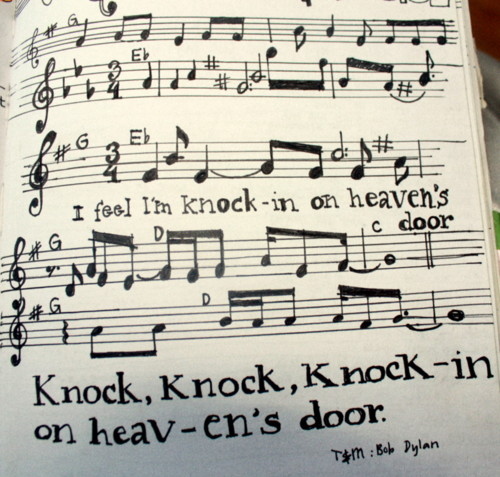 G
Eb
3
4
G Eb
3
4
I feel I'm Knock-in on heaven's
door
G D C
G D
Knock, Knock, Knock-in
on heav-en's door.
T&M : Bob Dylan